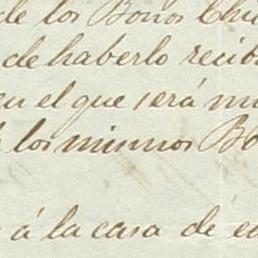 de los Bonos Chi
de haberlo recib
en el que será
los mismos Bo
á la casa de